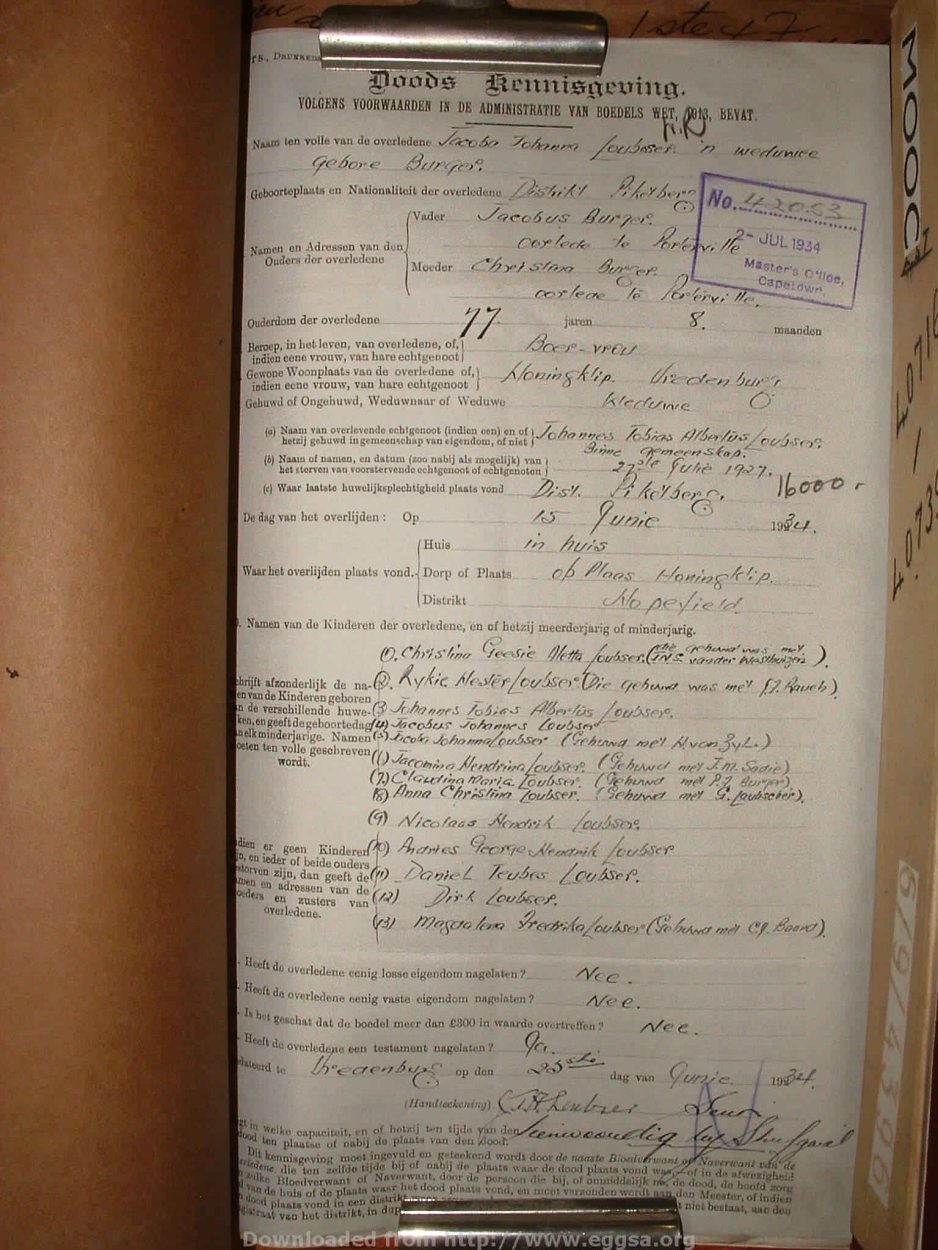 1ste 47
TS., DRUKKERS
Doods Kennisgeving.
VOLGENS VOORWAARDEN IN DE ADMINISTRATIE VAN BOEDELS WET, 1913, BEVAT.
Naam ten volle van de overledene Jacoba Johanna Loubser 'n weduwee
gebore Burger.
Geboorteplaats en Nationaliteit der overledene Distrikt Piketberg
No. 42053
2- JUL 1934
Master's Office,
Capetown.
Namen en Adressen van den Ouders der overledene
Vader Jacobus Burger.
oorlede te Porterville
Moeder Christina Burger.
oorlede te Porterville.
Ouderdom der overledene 77. jaren 8. maanden
Beroep, in het leven, van overledene, of, indien eene vrouw, van hare echtgenoot Boer-vrou
Gewone Woonplaats van de overledene of, indien eene vrouw, van hare echtgenoot Honingklip. Vredenburg
Gehuwd of Ongehuwd, Weduwnaar of Weduwe Weduwe
(a) Naam van overlevende echtgenoot (indien een) en of hetzij gehuwd in gemeenschap van eigendom, of niet Johannes Tobias Albertus Loubser.
Binne gemeenskap.
(b) Naam of namen, en datum (zoo nabij als mogelijk) van het sterven van voorstervende echtgenoot of echtgenoten 27ste Julie 1927.
(c) Waar laatste huwelijksplechtigheid plaats vond Dist. Piketberg. 16000.
De dag van het overlijden: Op 15 Junie 1934.
Waar het overlijden plaats vond.
Huis in huis
Dorp of Plaats op Plaas Honingklip.
Distrikt Hopefield
Namen van de Kinderen der overledene, en of hetzij meerderjarig of minderjarig.
(1). Christina Geesie Aletta Loubser. (die gehuwd was met J.N.S. van der Westhuizen).
(2). Rykie Hester Loubser (Die gehuwd was met F.J. Rauch).
(3) Johannes Tobias Albertus Loubser.
(4) Jacobus Johannes Loubser
(5) Jacoba Johanna Loubser (Gehuwd met H. van Zyl.)
(6) Jacomina Hendrina Loubser. (Gehuwd met J.M. Sadie)
(7.) Claudina Maria Loubser. (Gehuwd met P.J. Burger)
(8) Anna Christina Loubser. (Gehuwd met G. Laubscher).
(9) Nicolaas Hendrik Loubser.
(10) Andries George Hendrik Loubser
(11) Daniel Teubes Loubser.
(12) Dirk Loubser.
(13) Magdalena Fredrika Loubser (Gehuwd met C.J. Baard).
chrijft afzonderlijk de na-
en van de Kinderen geboren
n de verschillende huwe-
ken, en geeft de geboortedag
n elk minderjarige. Namen
oeten ten volle geschreven
wordt.
dien er geen Kinderen
jn, en ieder of beide ouders
storven zijn, dan geeft de
amen en adressen van de
oeders en zusters van
overledene.
Heeft de overledene eenig losse eigendom nagelaten? Nee.
Heeft de overledene eenig vaste eigendom nagelaten? Nee.
Is het geschat dat de boedel meer dan £300 in waarde overtreffen? Nee.
Heeft de overledene een testament nagelaten? Ja.
dateerd te Vredenburg op den 25ste dag van Junie 1934.
(Handteekening) Loubser Seun
gt in welke capaciteit, en of hetzij ten tijde van den
dood ten plaatse of nabij de plaats van den dood. Teenwoordig by Sterfgeval
Dit kennisgeving moet ingevuld en geteekend wordt door de naaste Bloedverwant of Naverwant van de
overledene, die ten zelfde tijde bij of nabij de plaats waar de dood plaats vond was, of in de afwezigheid
zulke Bloedverwant of Naverwant, door de persoon die bij, of onmiddelijk na, de dood, de hoofd zorg
van de huis of de plaats waar het dood plaats vond, en moet verzonden wordt aan den Meester, of indien
dood plaats vond in een distrikt niet bestaat, aan den
gistraat van het distrikt, in
MOOC
6/9/4396
Downloaded from http://www.eggsa.org